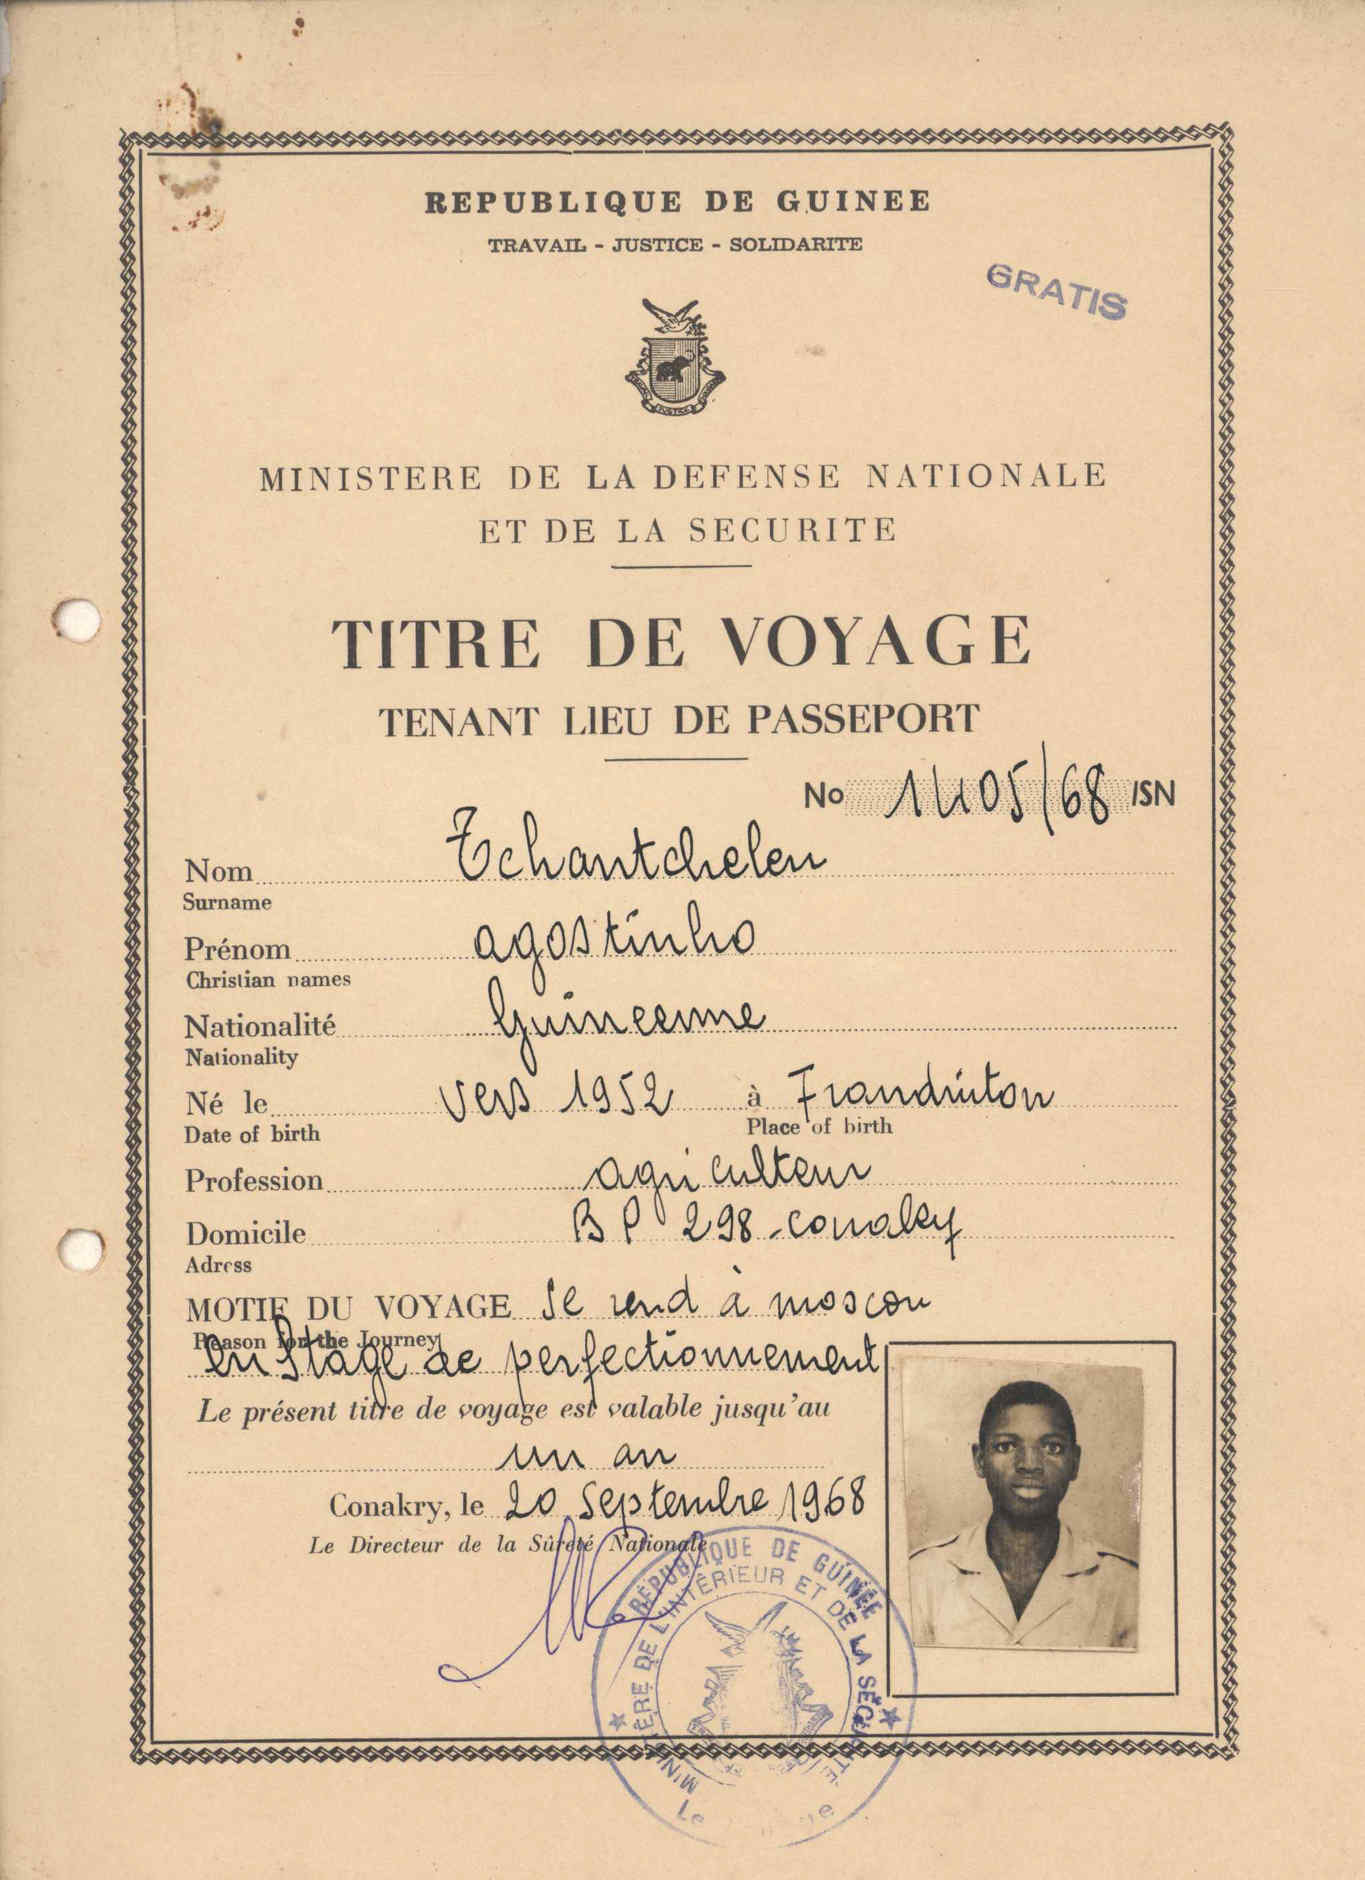 REPUBLIQUE DE GUINEE
TRAVAIL - JUSTICE - SOLIDARITE
GRATIS
MINISTERE DE LA DEFENSE NATIONALE
ET DE LA SECURITE
TITRE DE VOYAGE
TENANT LIEU DE PASSEPORT
No 1405/68 /SN
Nom Tchantchelen
Surname
Prénom agostinho
Christian names
Nationalité Guineenne
Nationality
Né le vers 1952 à Frandinton
Date of birth Place of birth
Profession agriculteur
Domicile B P 298 - conakry
Adress
MOTIF DU VOYAGE se rend à moscou
Reason for the Journey
en stage de perfectionnement
Le présent titre de voyage est valable jusqu'au
un an
Conakry, le 20 septembre 1968
Le Directeur de la Sûreté Nationale
RÉPUBLIQUE DE GUINÉE
MINISTÈRE DE L'INTÉRIEUR ET DE LA SÉCURITÉ